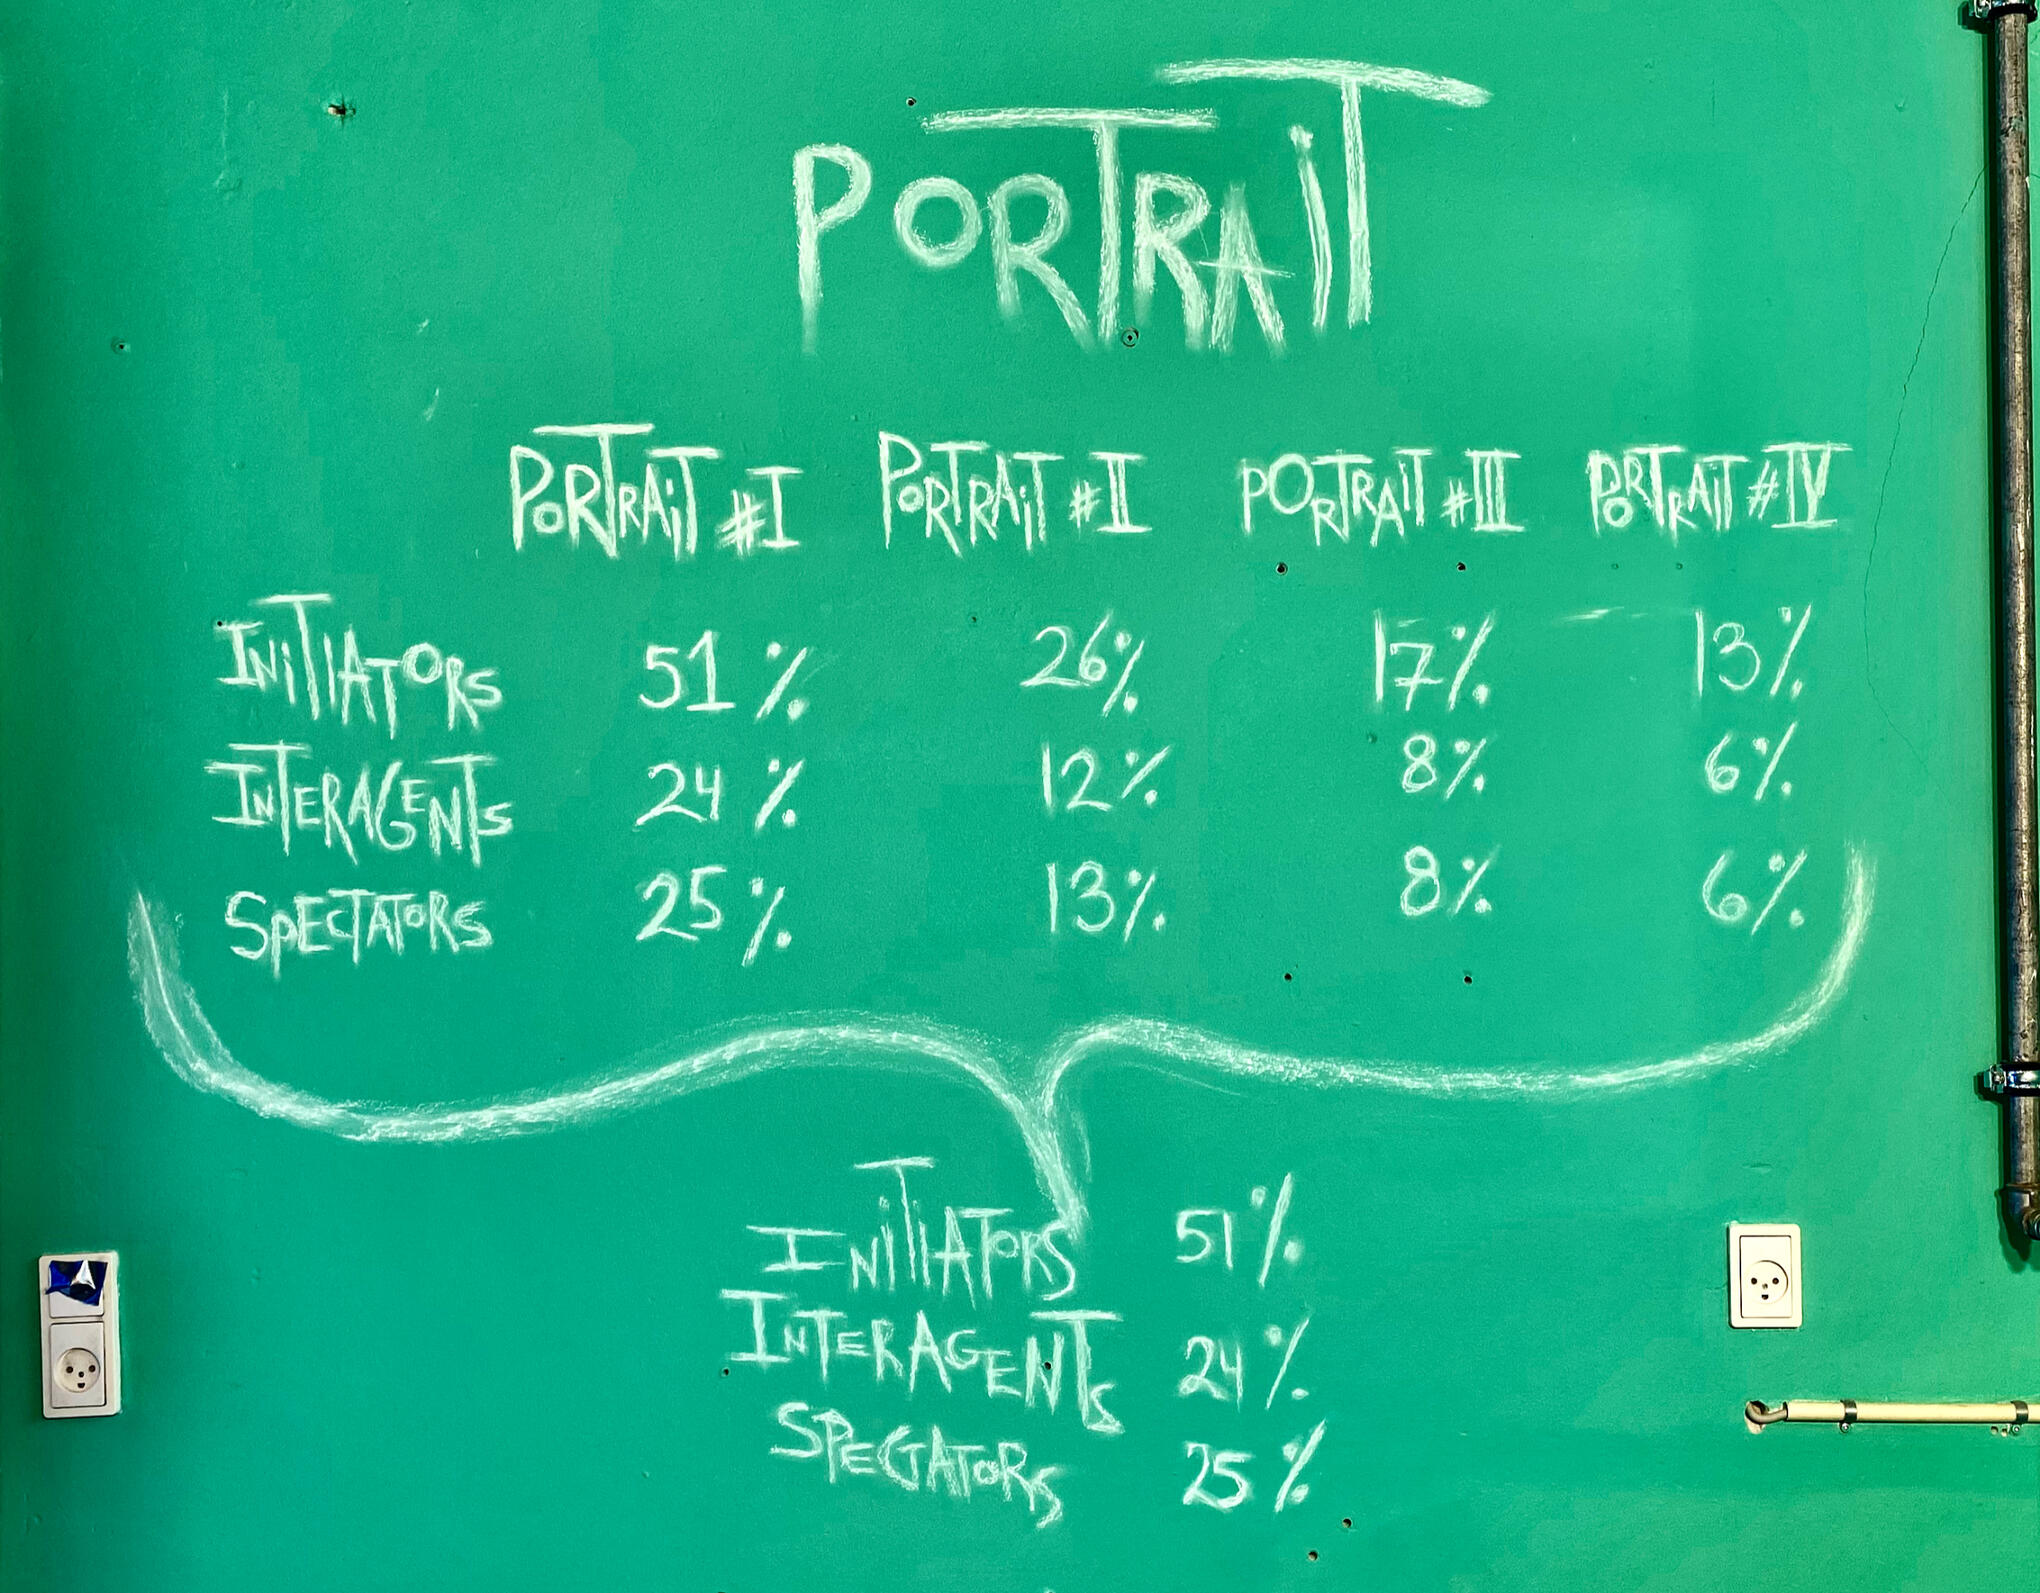 PORTRAIT
PORTRAIT #I PORTRAIT #II PORTRAIT #III PORTRAIT #IV
INITIATORS 51% 26% 17% 13%
INTERAGENTS 24% 12% 8% 6%
SPECTATORS 25% 13% 8% 6%
INITIATORS 51%
INTERAGENTS 24%
SPECTATORS 25%